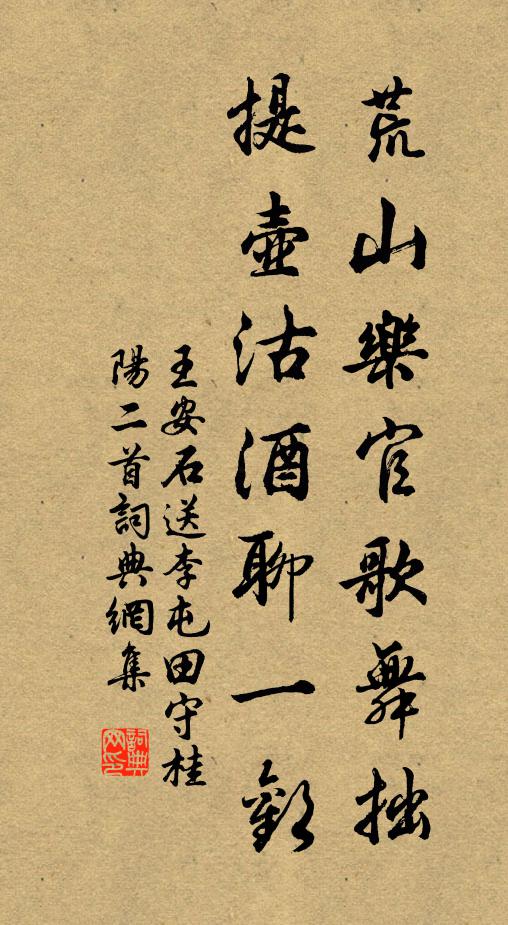 荒山樂官歌舞拙
提壺沽酒聊一勸
王安石送李屯田守桂
陽二首詞典網集
詞典网印